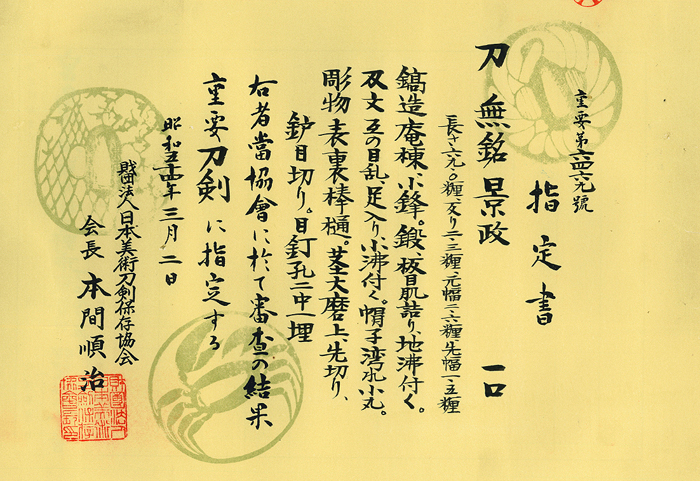 重要第六四六九號
指定書
刀 無銘 景政 一口
長さ六九・〇糎、反り二・三糎、元幅二・六糎、先幅一・五糎
鎬造、庵棟、小鋒。鍛、板目肌詰り、地沸付く。
刃文 互の目乱、足入り、小沸付く。帽子湾れ小丸。
彫物 表裏棒樋。茎大磨上、先切り、
鈩目切り。目釘孔二中一埋
右者當協會に於て審査の結果
重要刀剣に指定する
昭和五十四年三月二日
財団法人日本美術刀剣保存協会
会長 本間順治